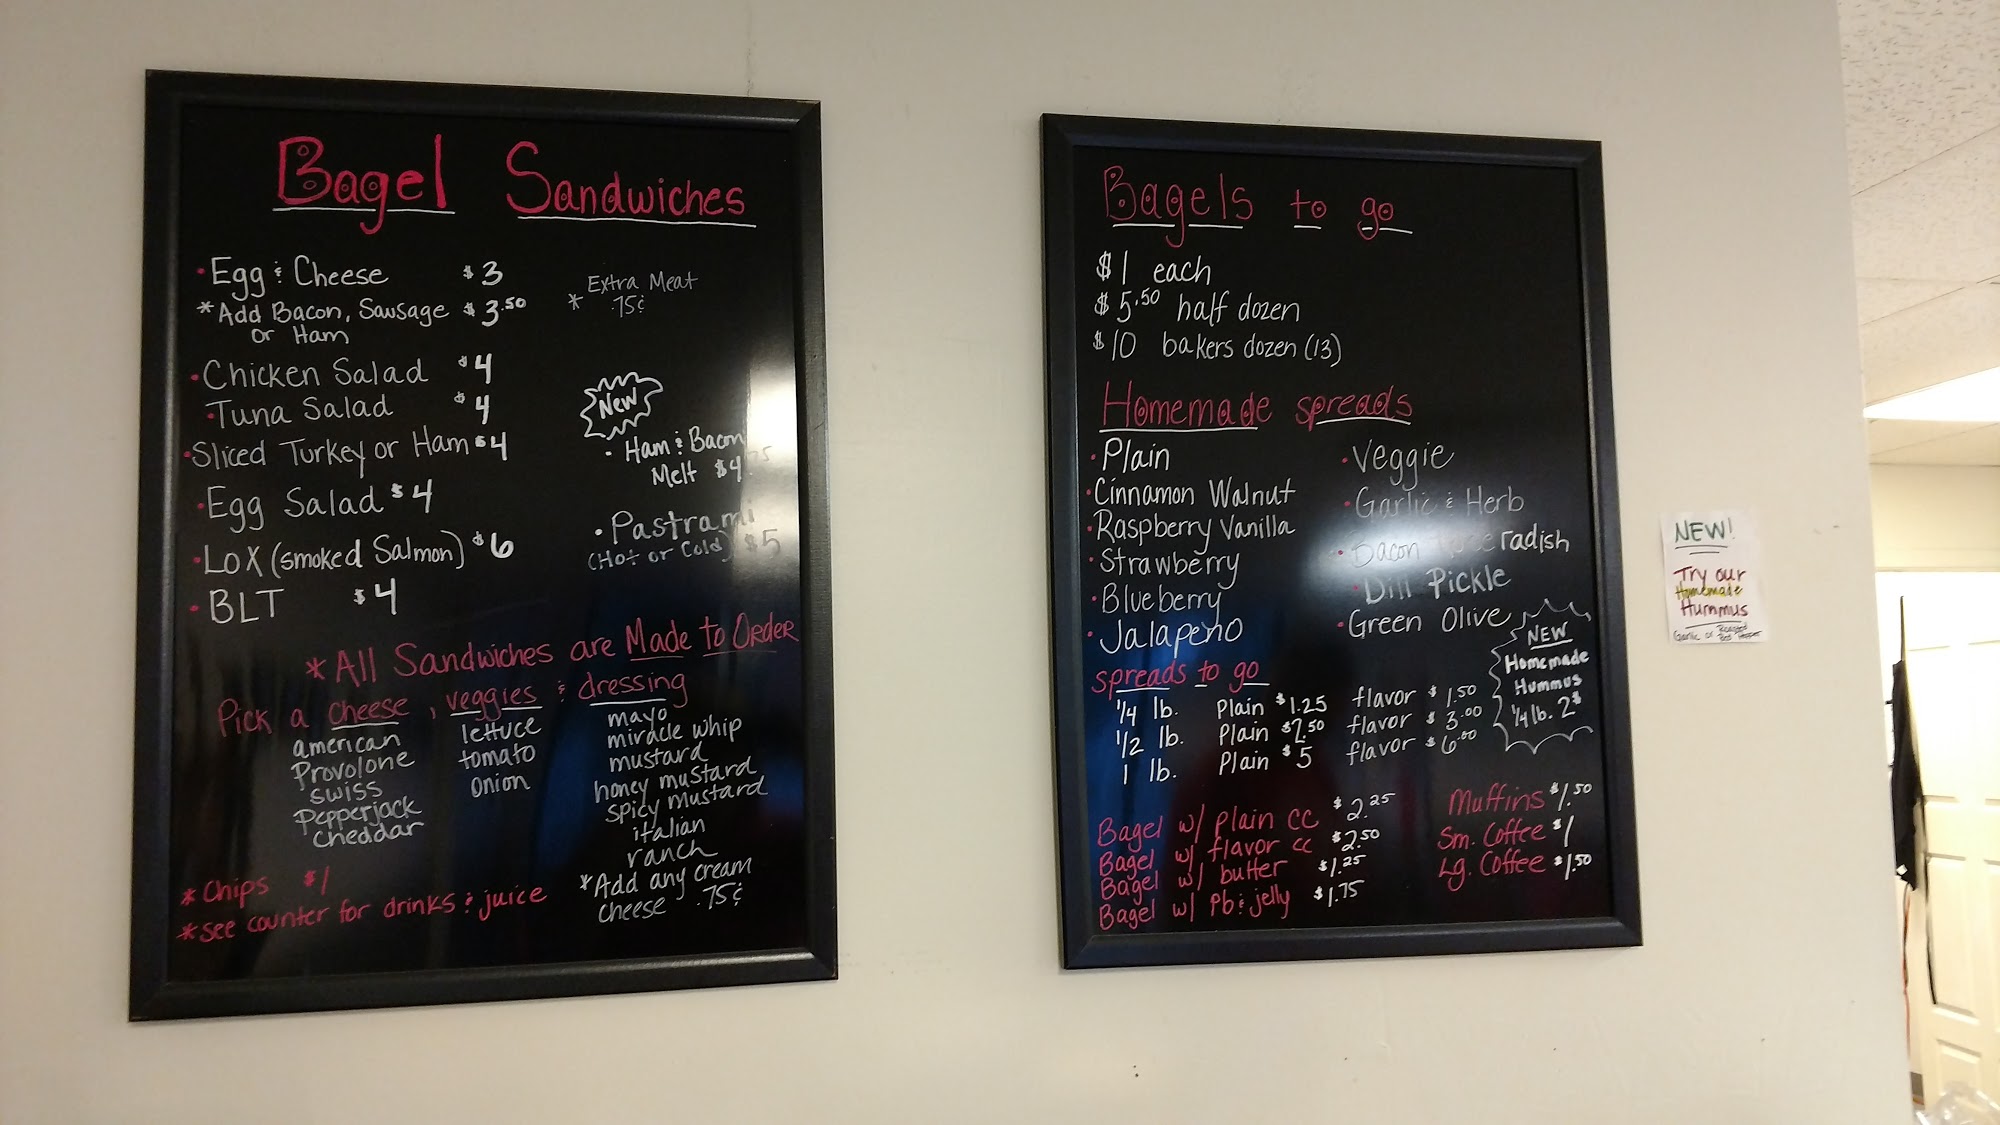 Bagel Sandwiches
• Egg & Cheese $3
* Add Bacon, Sausage $3.50
or Ham
* Extra Meat
.75¢
• Chicken Salad $4
• Tuna Salad $4
• Sliced Turkey or Ham $4
• Egg Salad $4
• Lox (smoked Salmon) $6
• BLT $4
New
• Ham & Bacon
Melt $4.75
• Pastrami
(Hot or Cold) $5
* All Sandwiches are Made to Order
Pick a cheese, veggies & dressing
american
Provolone
swiss
Pepperjack
cheddar
lettuce
tomato
onion
mayo
miracle whip
mustard
honey mustard
spicy mustard
italian
ranch
* Add any cream
cheese .75¢
* Chips $1
* see counter for drinks & juice
Bagels to go
$1 each
$5.50 half dozen
$10 bakers dozen (13)
Homemade spreads
• Plain
• Cinnamon Walnut
• Raspberry Vanilla
• Strawberry
• Blueberry
• Jalapeno
• Veggie
• Garlic & Herb
• Bacon Horseradish
• Dill Pickle
• Green Olive
spreads to go
1/4 lb. Plain $1.25 flavor $1.50
1/2 lb. Plain $2.50 flavor $3.00
1 lb. Plain $5 flavor $6.00
NEW
Homemade
Hummus
1/4 lb. 2$
Bagel w/ plain cc $2.25
Bagel w/ flavor cc $2.50
Bagel w/ butter $1.25
Bagel w/ Pb & jelly $1.75
Muffins $1.50
Sm. Coffee $1
Lg. Coffee $1.50
NEW!
Try our
Homemade
Hummus
Garlic or Roasted
Red Pepper